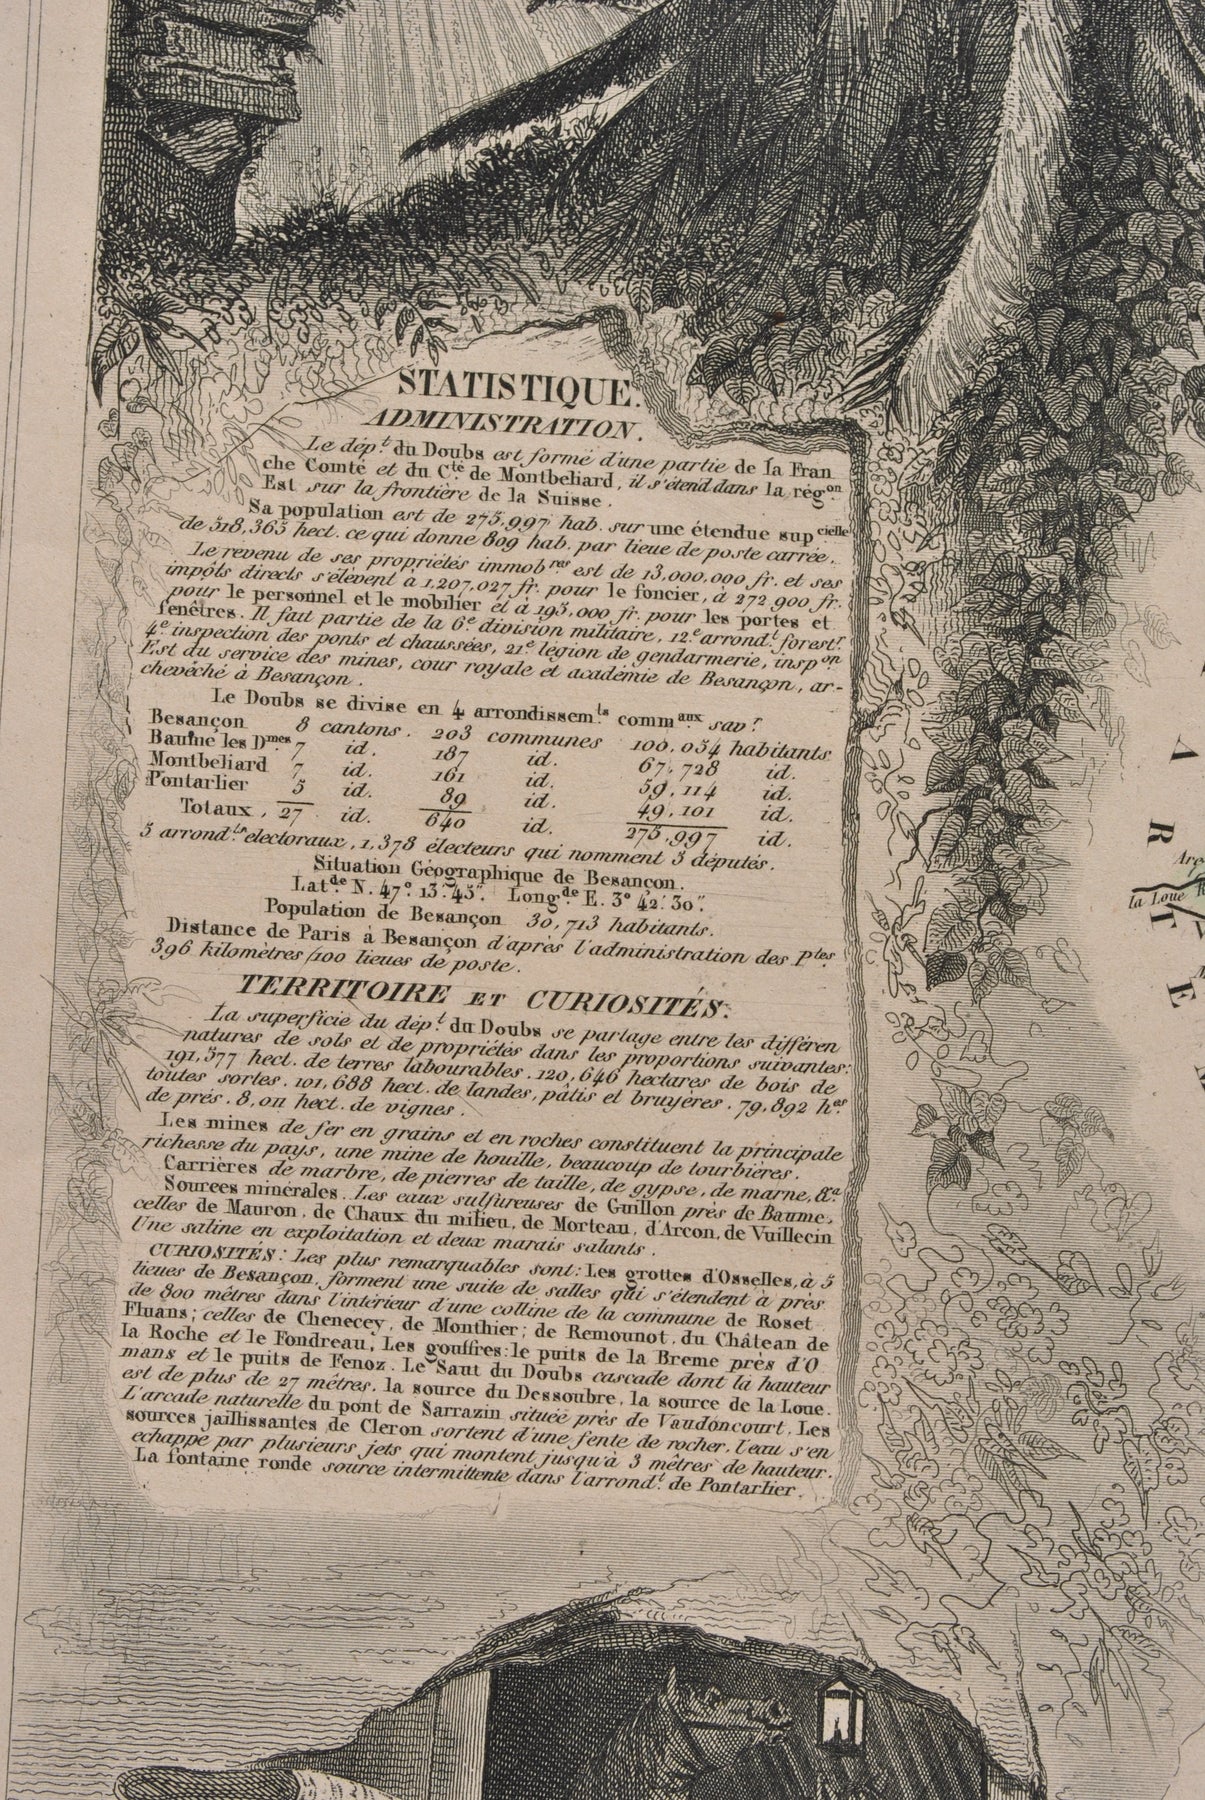 STATISTIQUE.
ADMINISTRATION.
Le dép.t du Doubs est formé d'une partie de la Fran
che Comté et du C.té de Montbeliard, il s'étend dans la rég.on
Est sur la frontière de la Suisse.
Sa population est de 275,997 hab. sur une étendue sup cielle
de 518,363 hect. ce qui donne 809 hab. par lieue de poste carrée.
Le revenu de ses propriétés immob.res est de 13,000,000 fr. et ses
impôts directs s'élèvent à 1,207,027 fr. pour le foncier, à 272,900 fr.
pour le personnel et le mobilier et à 193,000 fr. pour les portes et
fenêtres. Il fait partie de la 6.e division militaire, 12.e arrond.t forest.r
4.e inspection des ponts et chaussées, 21.e légion de gendarmerie, insp.on
Est du service des mines, cour royale et académie de Besançon, ar-
chevêché à Besançon.
Le Doubs se divise en 4 arrondissem.ts comm.aux sav.r
Besançon 8 cantons. 203 communes 100,054 habitants
Baume les D.mes 7 id. 187 id. 67,728 id.
Montbeliard 7 id. 161 id. 59,114 id.
Pontarlier 5 id. 89 id. 49,101 id.
Totaux, 27 id. 640 id. 275,997 id.
5 arrond.ts electoraux, 1,378 électeurs qui nomment 5 députés.
Situation Géographique de Besançon.
Lat.de N. 47° 13' 45". Long.de E. 3° 42' 30".
Population de Besançon 30,713 habitants.
Distance de Paris à Besançon d'après l'administration des P.tes
396 kilomètres /100 lieues de poste.
TERRITOIRE ET CURIOSITÉS.
La superficie du dép.t du Doubs se partage entre les différen
natures de sols et de propriétés dans les proportions suivantes:
191,577 hect. de terres labourables. 120,646 hectares de bois de
toutes sortes. 101,688 hect. de landes, pâtis et bruyères. 79,892 h.es
de prés. 8,011 hect. de vignes.
Les mines de fer en grains et en roches constituent la principale
richesse du pays, une mine de houille, beaucoup de tourbières.
Carrières de marbre, de pierres de taille, de gypse, de marne, &.a
Sources minérales. Les eaux sulfureuses de Guillon près de Baume,
celles de Mauron, de Chaux du milieu, de Morteau, d'Arcon, de Vuillecin
Une saline en exploitation et deux marais salants.
CURIOSITÉS: Les plus remarquables sont: Les grottes d'Osselles, à 5
lieues de Besançon, forment une suite de salles qui s'étendent à près
de 800 mètres dans l'intérieur d'une colline de la commune de Roset
Fluans; celles de Chenecey, de Monthier; de Remounot, du Châtean de
la Roche et le Fondreau; Les gouffres: le puits de la Breme près d'O
mans et le puits de Fenoz. Le Saut du Doubs cascade dont la hauteur
est de plus de 27 mètres. la source du Dessoubre, la source de la Loue.
L'arcade naturelle du pont de Sarrazin située près de Vaudoncourt. Les
sources jaillissantes de Cleron sortent d'une fente de rocher, l'eau s'en
echappe par plusieurs jets qui montent jusqu'à 3 mètres de hauteur.
La fontaine ronde source intermittente dans l'arrond.t de Pontarlier.
A
R
T
E
la Loue R